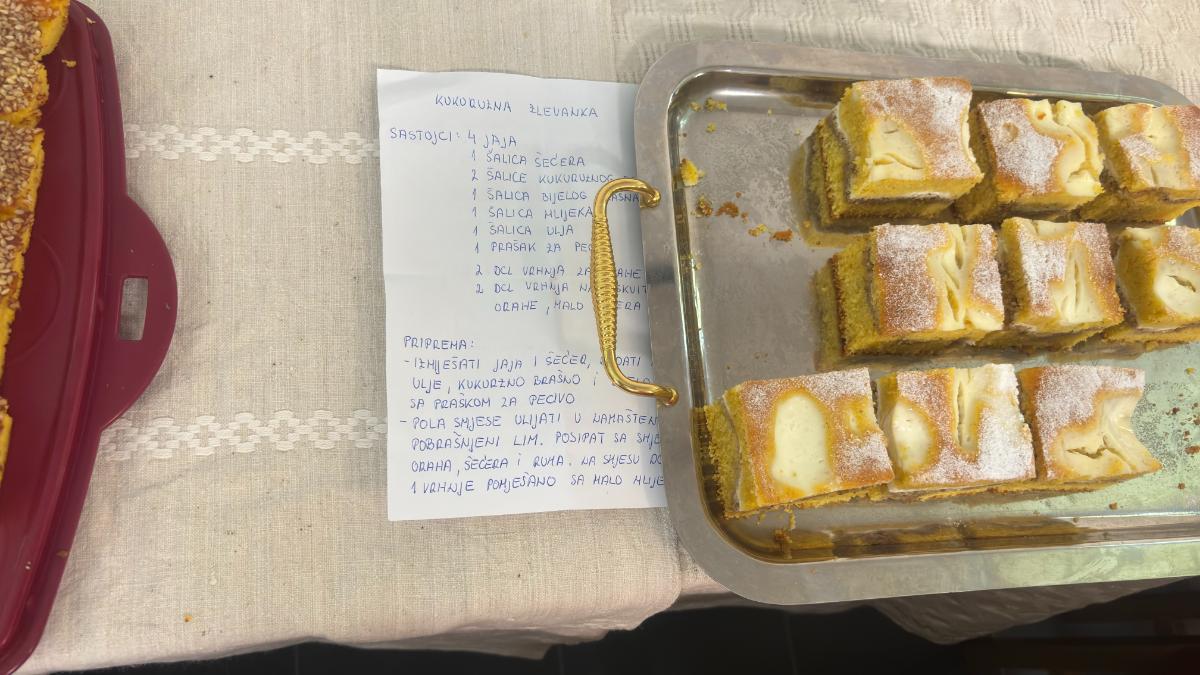 KUKURUZNA ZLEVANKA
SASTOJCI: 4 JAJA
1 ŠALICA ŠEĆERA
2 ŠALICE KUKURUZNOG
1 ŠALICA BIJELOG
1 ŠALICA MLIJEKA
1 ŠALICA ULJA
1 PRAŠAK ZA
2 DCL VRHNJA
2 DCL VRHNJA
ORAHE, MALO
PRIPREMA:
- IZMJEŠATI JAJA I ŠEĆER,
ULJE, KUKURZNO BRAŠNO I
SA PRAŠKOM ZA PECIVO
- POLA SMJESE ULIJATI U
POBRAŠNJENI LIM. POSIPAT SA
ORAHA, ŠEĆERA I RUMA. NA SMJESU
1 VRHNJE POMJEŠANO SA MALO